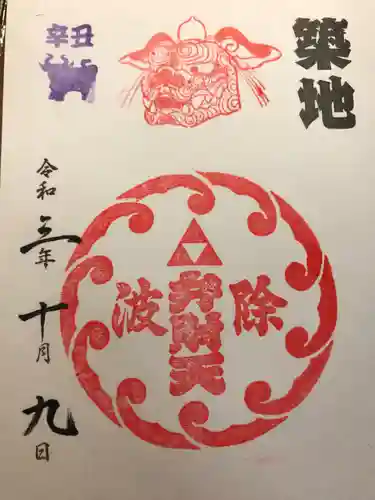 築地
辛丑
除
弁財天
波
令和三年十月九日